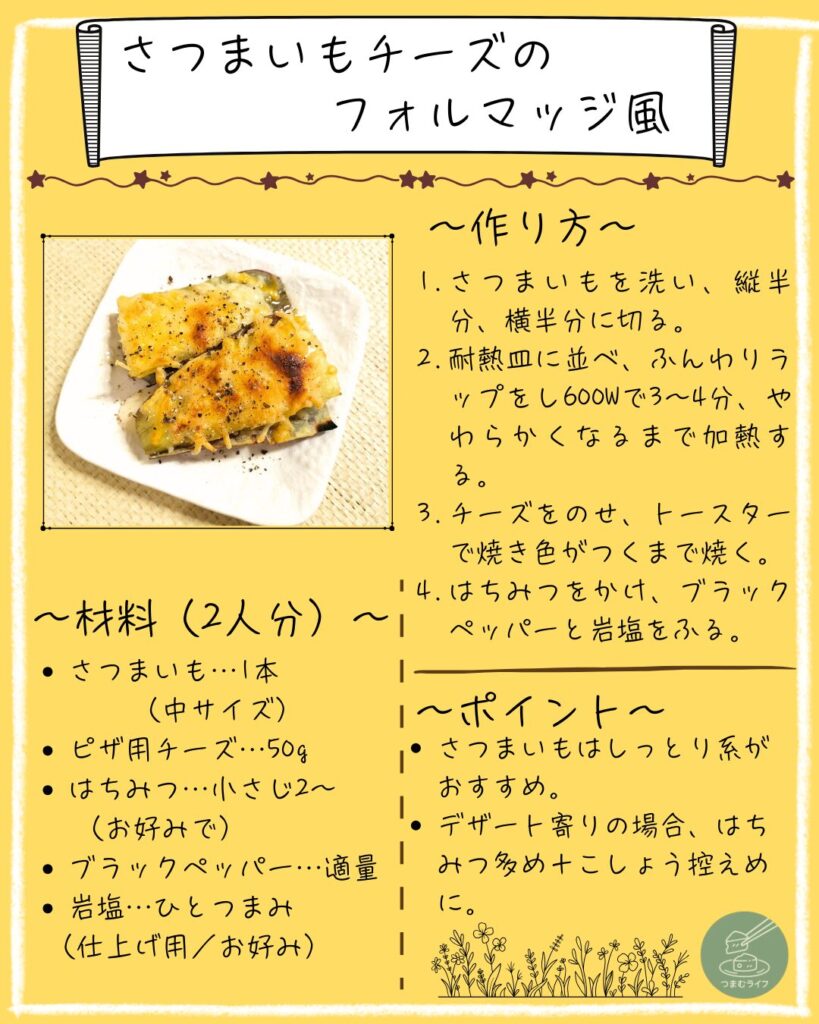 さつまいもチーズの
フォルマッジ風
〜作り方〜
1. さつまいもを洗い、縦半
分、横半分に切る。
2. 耐熱皿に並べ、ふんわりラ
ップをし600Wで3〜4分、や
わらかくなるまで加熱す
る。
3. チーズをのせ、トースター
で焼き色がつくまで焼く。
4. はちみつをかけ、ブラック
ペッパーと岩塩をふる。
〜材料（2人分）〜
• さつまいも…1本
（中サイズ）
• ピザ用チーズ…50g
• はちみつ…小さじ2〜
（お好みで）
• ブラックペッパー…適量
• 岩塩…ひとつまみ
（仕上げ用／お好み）
〜ポイント〜
• さつまいもはしっとり系が
おすすめ。
• デザート寄りの場合、はち
みつ多め＋こしょう控えめ
に。
つまむライフ